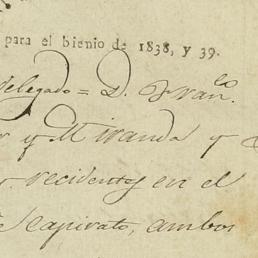 para el bienio de 1838, y 39.
delegado = D. Fran.co
y Miranda y
recidentes en el
Capirato, ambos